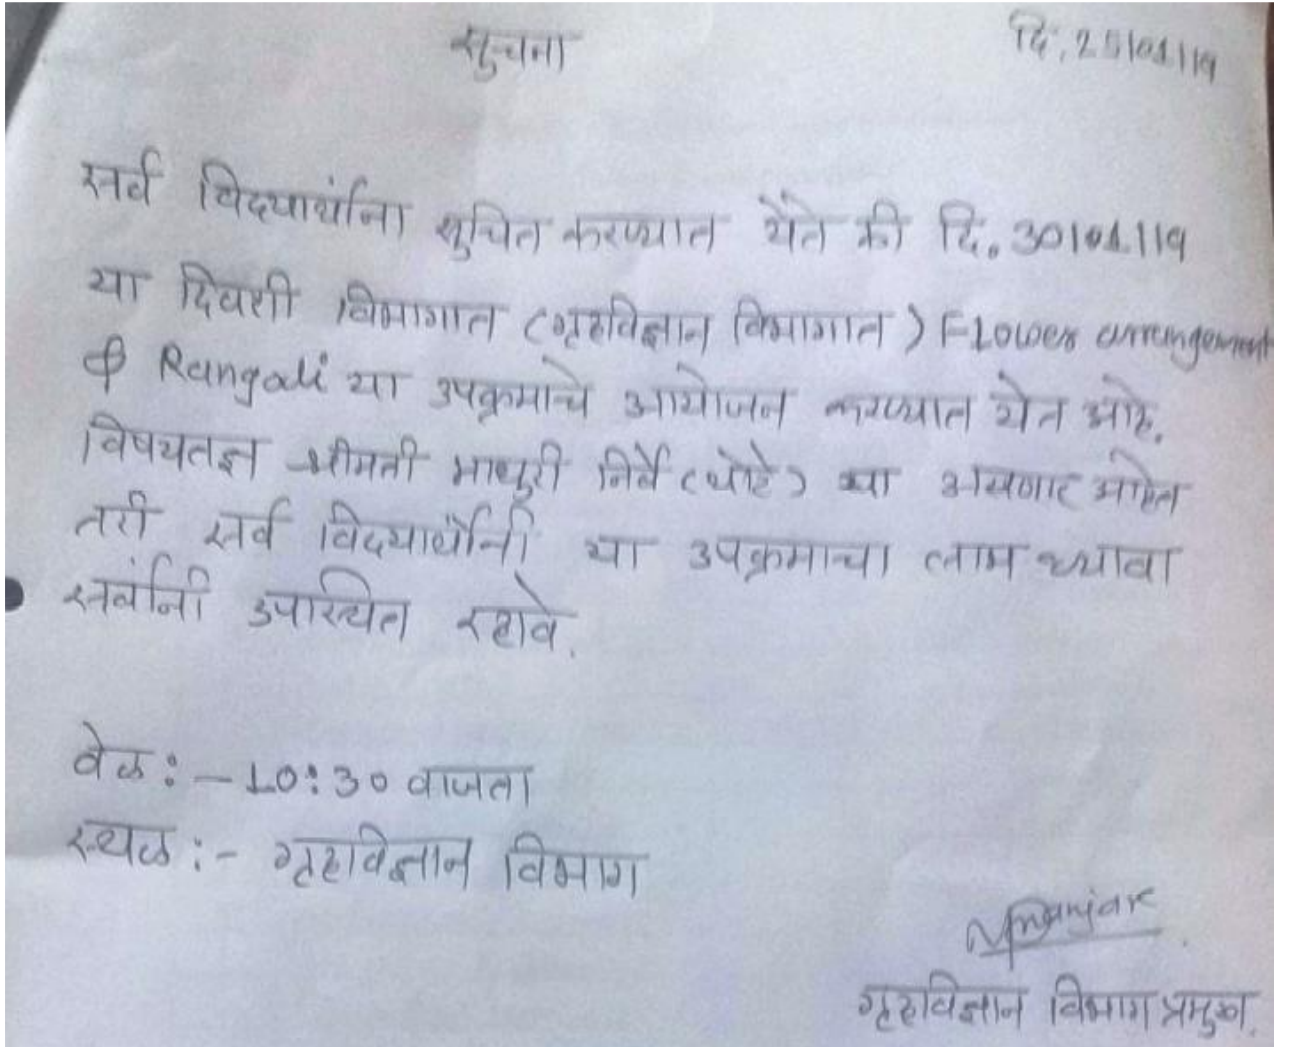 सुचना
दि. 25/01/19
सर्व विद्यार्थांना सुचित करण्यात येते की दि. 30/01/19
या दिवशी विभागात (गृहविज्ञान विभागात) Flower arrangement
& Rangoli या उपक्रमाचे आयोजन करण्यात येत आहे.
विषयतज्ञ श्रीमती माधुरी निर्वे (थोटे) या असणार आहेत
तरी सर्व विद्यार्थांनी या उपक्रमाचा लाभ घ्यावा
सर्वांनी उपस्थित रहावे.
वेळ :- 10:30 वाजता
स्थळ :- गृहविज्ञान विभाग
गृहविज्ञान विभाग प्रमुख.